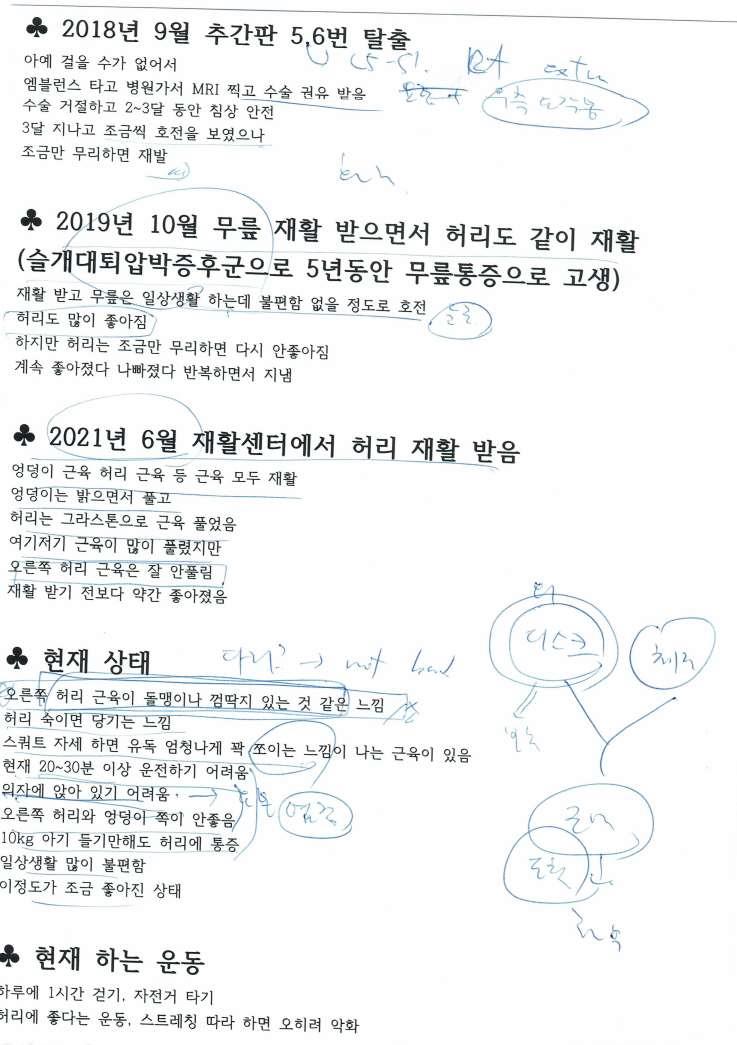 ♣ 2018년 9월 추간판 5,6번 탈출
아예 걸을 수가 없어서
엠블런스 타고 병원가서 MRI 찍고 수술 권유 받음
수술 거절하고 2~3달 동안 침상 안전
3달 지나고 조금씩 호전을 보였으나
조금만 무리하면 재발
♣ 2019년 10월 무릎 재활 받으면서 허리도 같이 재활
(슬개대퇴압박증후군으로 5년동안 무릎통증으로 고생)
재활 받고 무릎은 일상생활 하는데 불편함 없을 정도로 호전
허리도 많이 좋아짐
하지만 허리는 조금만 무리하면 다시 안좋아짐
계속 좋아졌다 나빠졌다 반복하면서 지냄
♣ 2021년 6월 재활센터에서 허리 재활 받음
엉덩이 근육 허리 근육 등 근육 모두 재활
엉덩이는 밝으면서 풀고
허리는 그라스톤으로 근육 풀었음
여기저기 근육이 많이 풀렸지만
오른쪽 허리 근육은 잘 안풀림
재활 받기 전보다 약간 좋아졌음
디스크
♣ 현재 상태
다리? → not bad
오른쪽 허리 근육이 돌맹이나 껌딱지 있는 것 같은 느낌
허리 숙이면 당기는 느낌
스쿼트 자세 하면 유독 엄청나게 꽉 쪼이는 느낌이 나는 근육이 있음
현재 20~30분 이상 운전하기 어려움
의자에 앉아 있기 어려움
오른쪽 허리와 엉덩이 쪽이 안좋음
10kg 아기 들기만해도 허리에 통증
일상생활 많이 불편함
이정도가 조금 좋아진 상태
♣ 현재 하는 운동
하루에 1시간 걷기, 자전거 타기
허리에 좋다는 운동, 스트레칭 따라 하면 오히려 악화